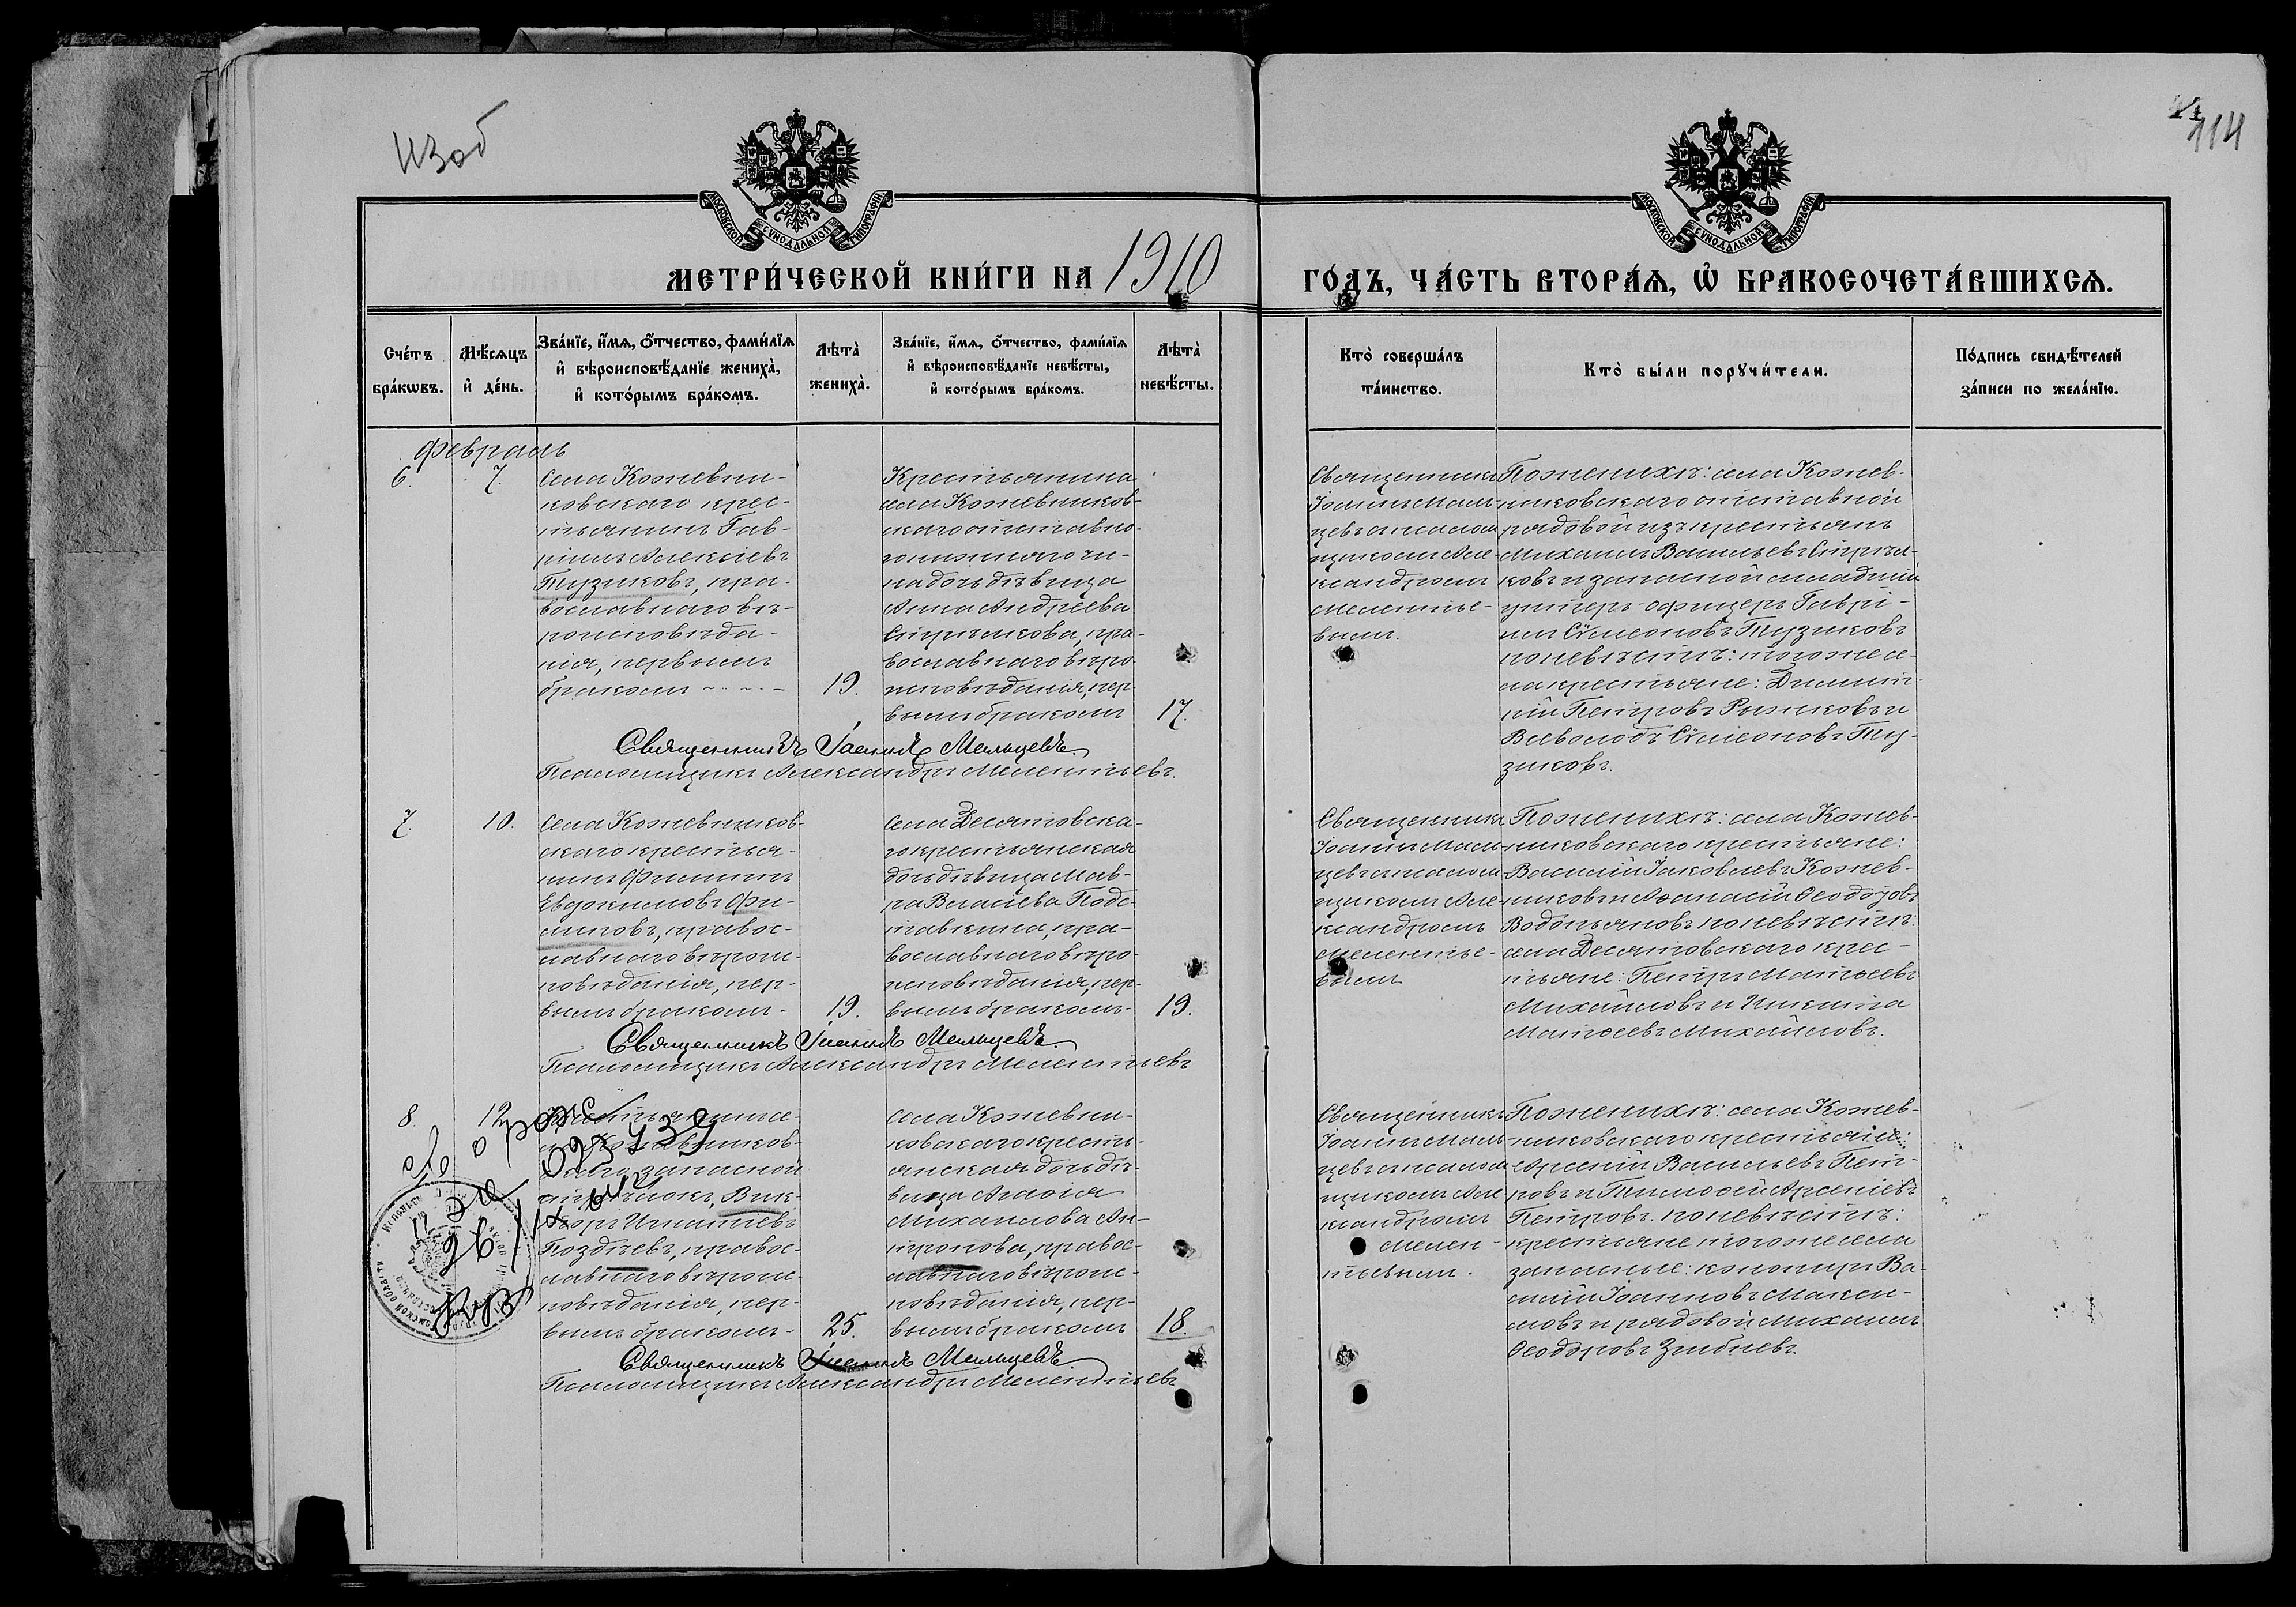 Изоб
114
МОСКОВСКОЙ СѴНОДАЛЬНОЙ ТИПОГРАФІИ
МОСКОВСКОЙ СѴНОДАЛЬНОЙ ТИПОГРАФІИ
МЕТРИ́ЧЕСКОЙ КНИ́ГИ НА 1910
ГО́ДЪ, ЧА́СТЬ ВТОРА́Ѧ, Ѡ҆ БРАКОСОЧЕТА́ВШИХСѦ.
Сче́тъ бра́кѡвъ.
Мѣ́сѧцъ и҆ де́нь.
Зва́нїе, и҆́мѧ, ѻ҆́тчество, фами́лїѧ и҆ вѣроисповѣ́данїе жениха̀, и҆ кото́рымъ бра́комъ.
Лѣта̀ жениха̀.
Зва́нїе, и҆́мѧ, ѻ҆́тчество, фами́лїѧ и҆ вѣроисповѣ́данїе невѣ́сты, и҆ кото́рымъ бра́комъ.
Лѣта̀ невѣ́сты.
Кто̀ соверша́лъ та́инство.
Кто̀ бы́ли порꙋчи́тели.
По́дпись свидѣ́телей за́писи по жела́нїю.
Февраль
6.
7.
Села Кожевни-
ковскаго крес-
тьянинъ Гав-
ріилъ Алексіевъ
Тузиковъ, пра-
вославнаго вѣ-
роисповѣда-
нія, первымъ
бракомъ
19.
Крестьянина
села Кожевников-
скаго отставно-
го нижняго чи-
на дочь дѣвица
Анна Андреева
Стрѣлкова, пра-
вославнаго вѣро-
исповѣданія, пер-
вымъ бракомъ
17.
Священникъ
Іоаннъ Маль-
цевъ съ псалом-
щикомъ Але-
ксандромъ
Мелентье-
вымъ.
По женихѣ: села Кожев-
никовскаго отставной
рядовой изъ крестьянъ
Михаилъ Васильевъ Стрѣл-
ковъ и запасной младшій
унтеръ-офицеръ Гаврі-
илъ Сѵмеоновъ Тузиковъ
по невѣстѣ: того же се-
ла крестьяне: Димит-
рій Петровъ Рыжковъ и
Всеволодъ Сѵмеоновъ Ту-
зиковъ.
Священникъ Іоаннъ Мальцевъ
Псаломщикъ Александръ Мелентьевъ.
7.
10.
Села Кожевников-
скаго крестья-
нинъ Филиппъ
Евдокимовъ Фи-
миновъ, правос-
лавнаго вѣроис-
повѣданія, пер-
вымъ бракомъ-
19.
Села Десятовска-
го крестьянская
дочь дѣвица Мав-
ра Власіева Подс-
тавкина, пра-
вославнаго вѣро-
исповѣданія, пер-
вымъ бракомъ-
19.
Священникъ
Іоаннъ Маль-
цевъ съ псалом-
щикомъ Але-
ксандромъ
Мелентье-
вымъ
По женихѣ: села Кожев-
никовскаго крестьяне:
Василій Іаковлевъ Кожев-
никовъ и Аѳанасій Ѳеодоровъ
Водопьяновъ по невѣстѣ:
села Десятовскаго крес-
тьяне: Петръ Матѳеевъ
Михайловъ и Никита
Матѳеевъ Михайловъ.
Священникъ Іоаннъ Мальцевъ.
Псаломщикъ Александръ Мелентьевъ
8.
12
запасной
стрѣлокъ, Вик-
торъ Игнатіевъ
Поздѣевъ, правос-
лавнаго вѣроис-
повѣданія, пер-
вымъ бракомъ-
25.
Села Кожевни-
ковскаго кресть-
янская дочь дѣ-
вица Агаѳія
Михаилова Ан-
тропова, правос-
лавнаго вѣроис-
повѣданія, пер-
вымъ бракомъ
18.
Священникъ
Іоаннъ Маль-
цевъ съ псалом-
щикомъ Але-
ксандромъ
Мелен-
тьевымъ.
По женихѣ: села Кожев-
никовскаго крестьяне:
Арсеній Васильевъ Пет-
ровъ и Тимоѳей Арсеніевъ
Петровъ. по невѣстѣ:
крестьяне того же села
запасные: канониръ Ва-
силій Іоанновъ Макси-
мовъ и рядовой Михаилъ
Ѳеодоровъ Зибневъ.
Священникъ Іоаннъ Мальцевъ.
Псаломщикъ Александръ Мелентьевъ